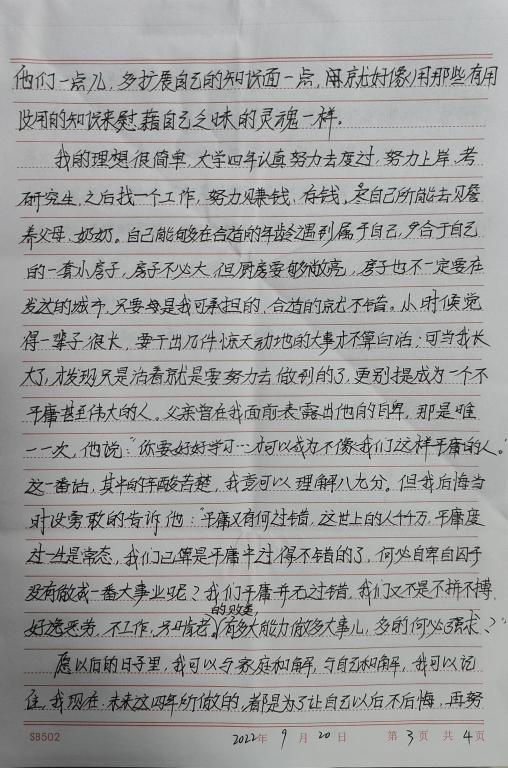 他们一点儿，多扩展自己的知识面一点，闲就好像用那些有用
没用的知识来慰藉自己乏味的灵魂一样。
我的理想很简单，大学四年认真努力去度过，努力上岸，考
研究生，之后找一个工作，努力赚钱、存钱。尽自己所能去赡
养父母、奶奶。自己能够在合适的年龄遇到属于自己，适合于自己
的一套小房子，房子不必大，但厨房要够敞亮，房子也不一定要在
发达的城市，只要是我可承担的，合适的就不错。小时候觉
得一辈子很长，要干出几件惊天动地的大事才不算白活；可当我长
大了，才发现只是活着就是要努力去做到的了，更别提成为一个不
平庸甚至伟大的人。父亲曾在我面前表露出他的自卑，那是唯
一一次，他说：“你要好好学习…才可以成为不像我们这样平庸的人。”
这一番话，其中的辛酸苦楚，我竟可以理解八九分。但我后悔当
时没勇敢的告诉他：“平庸又有何过错，这世上的人千千万，平庸度
过一生是常态，我们已算是平庸中过得不错的了，何必自卑自囚于
没有做成一番大事业呢？我们平庸并无过错，我们又不是不拼不搏、
好逸恶劳，不工作，只啃老的败类，有多大能力做多大事儿，多的何必强求？”
愿以后的日子里，我可以与家庭和解，与自己和解，我可以记
住，我现在、未来这四年所做的，都是为了让自己以后不后悔，再努
SB502 2022年 9月 20日 第3页 共4页